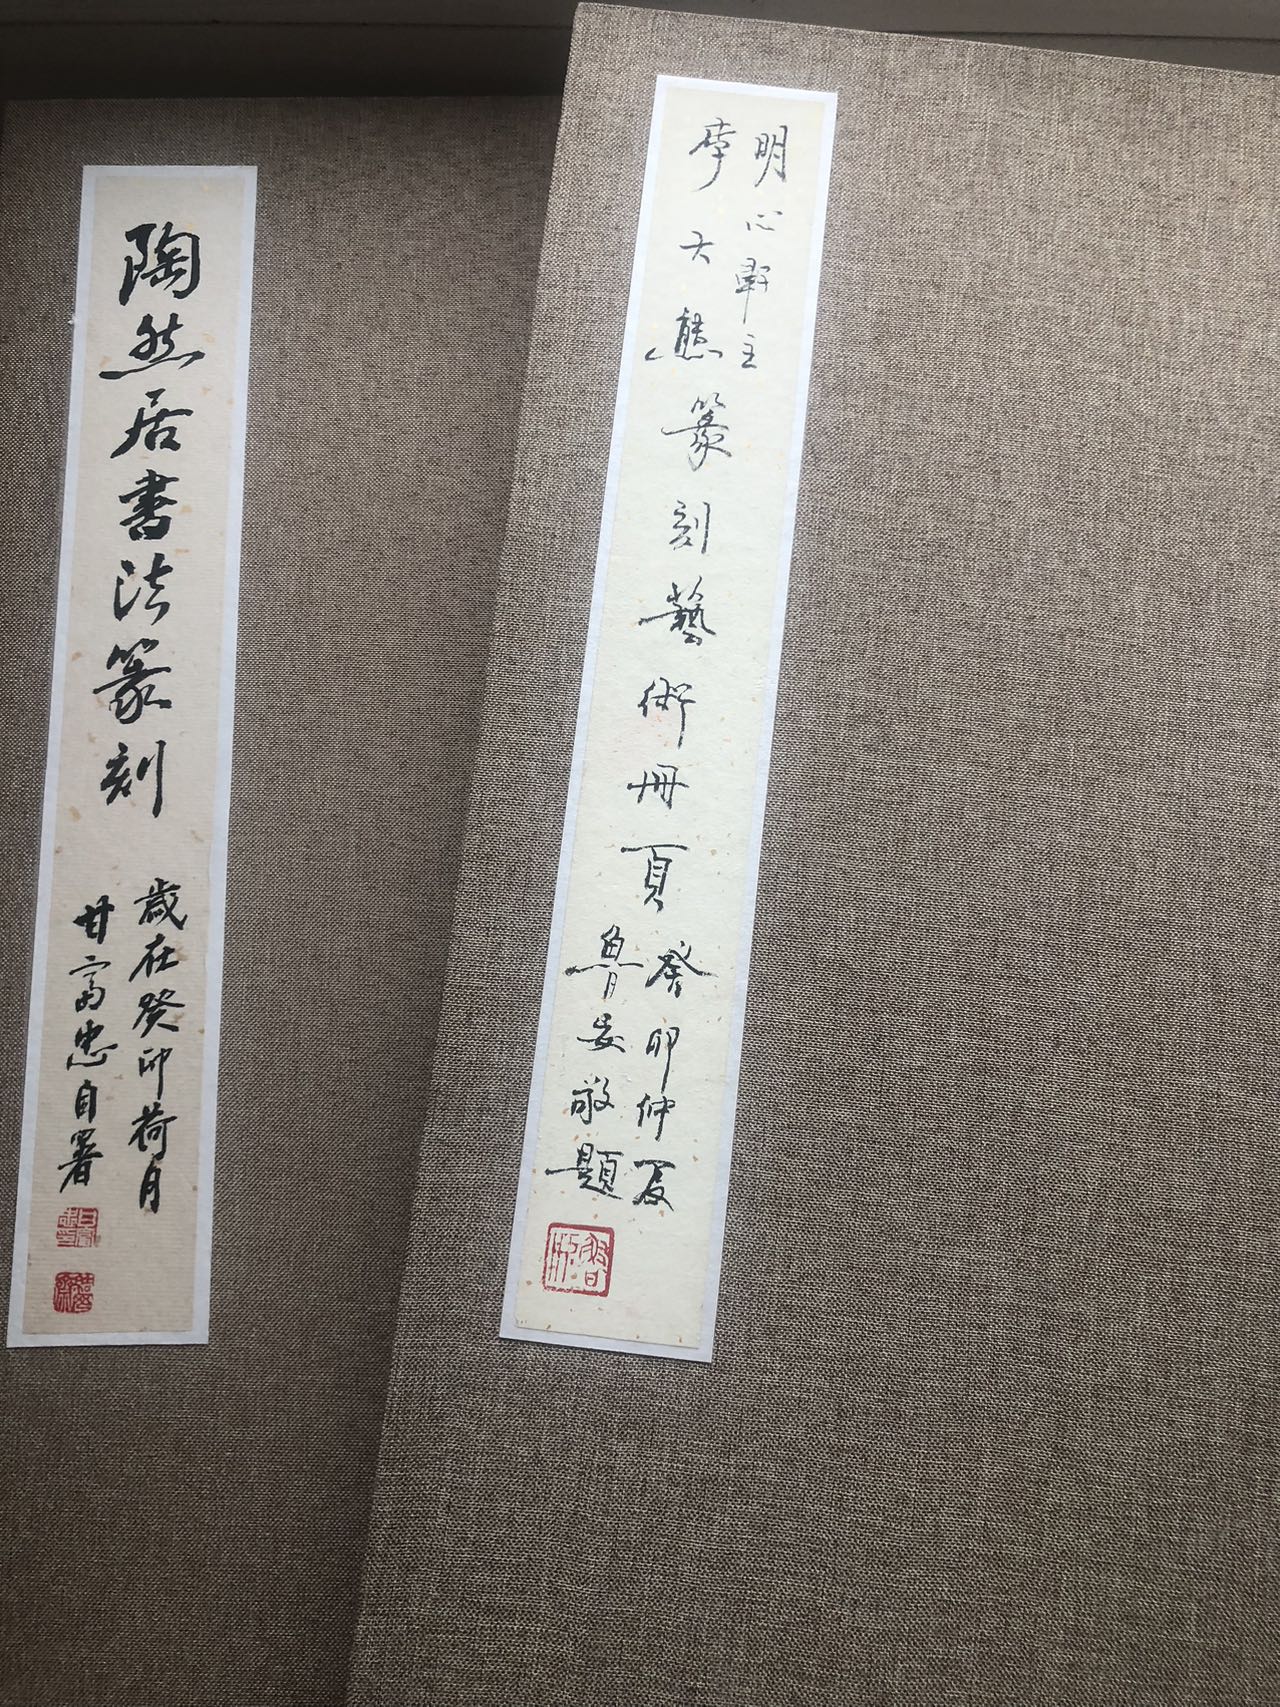 陶然居書法篆刻
歲在癸卯荷月
甘富忠自署
明心軒主
李大熊篆刻藝術冊頁
癸卯仲夏
魯安敬題